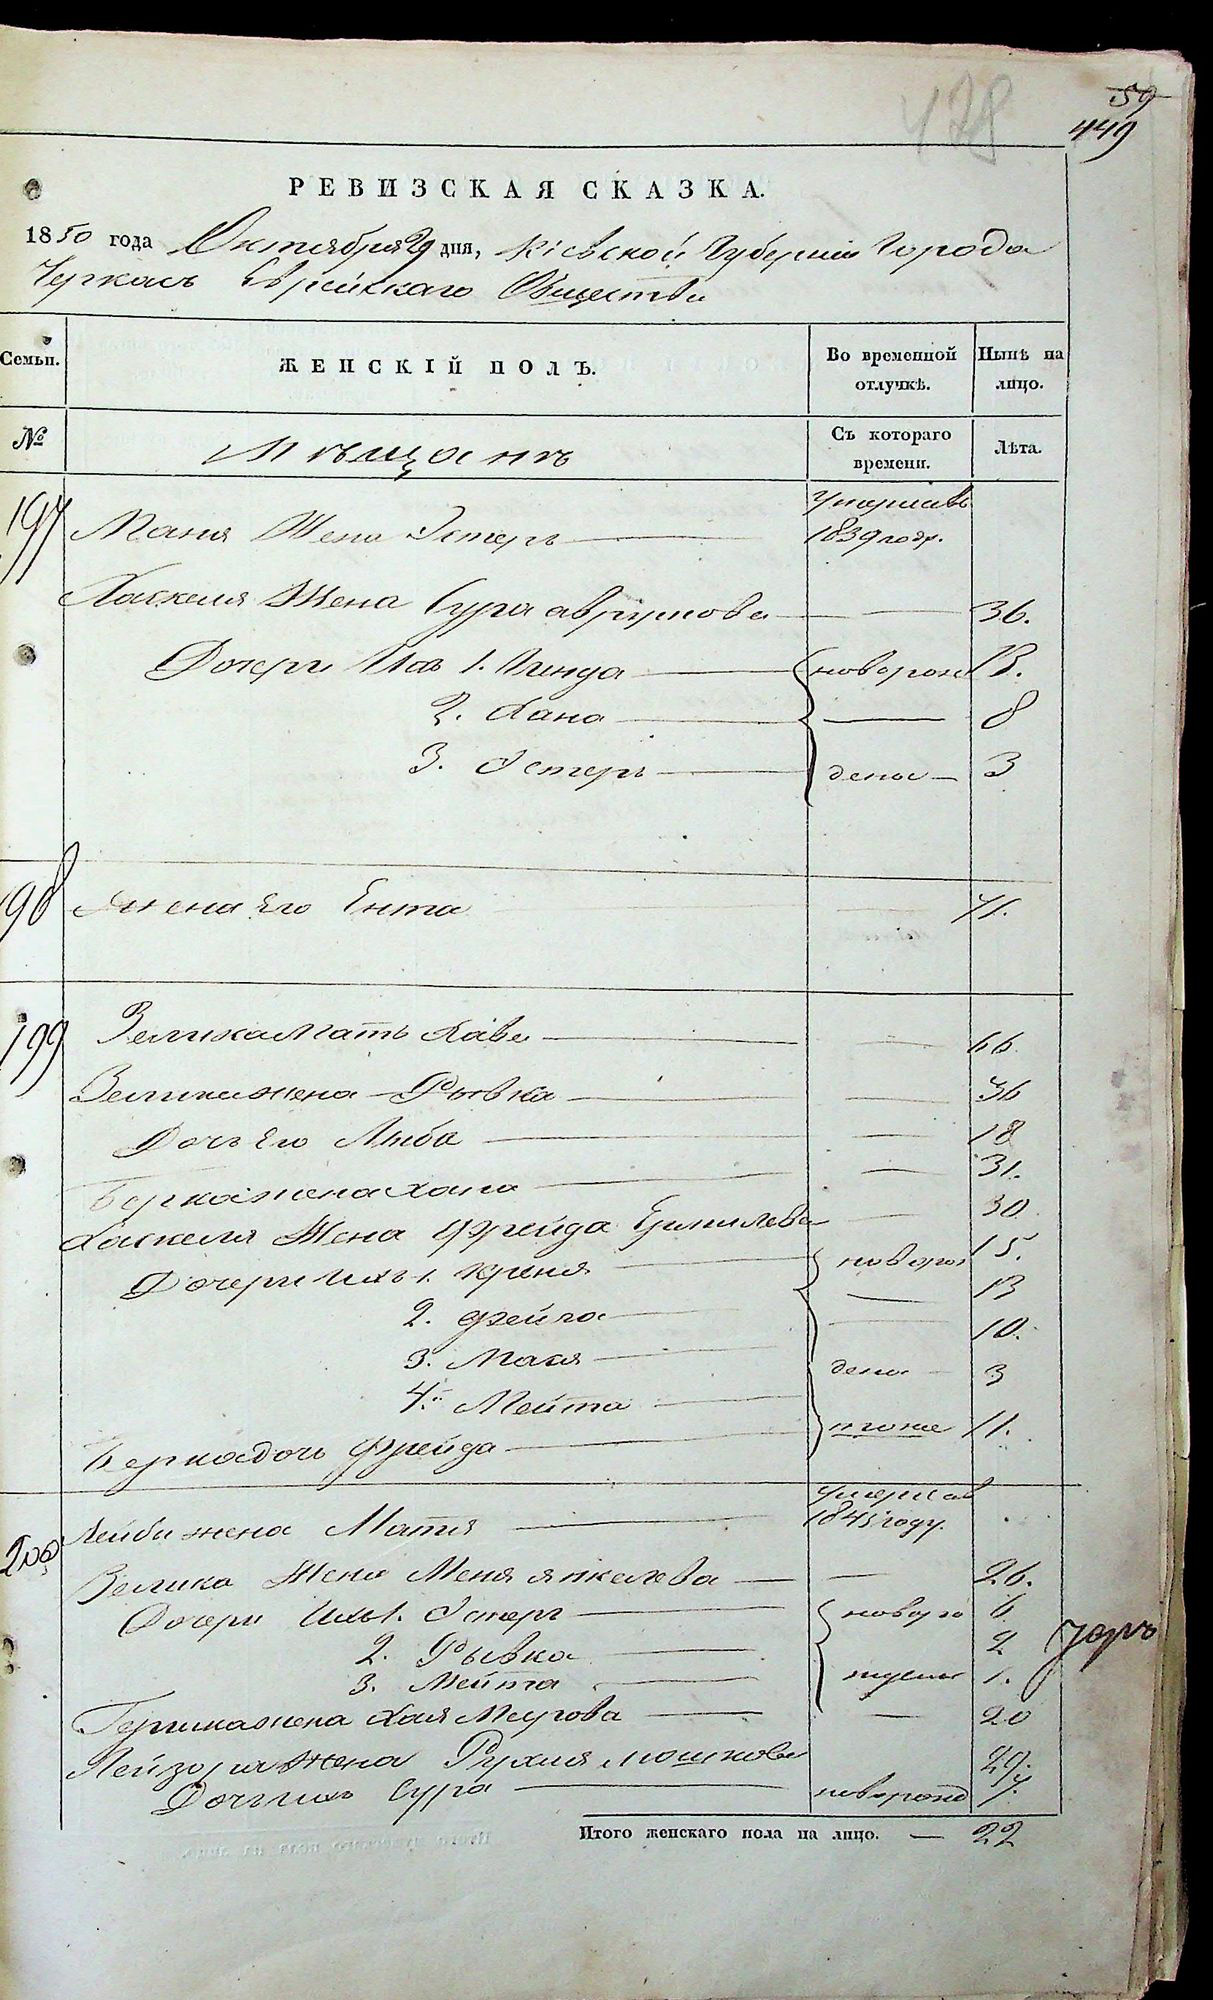 59
449
428
РЕВИЗСКАЯ СКАЗКА.
1850 года Октября 29 дня, Кіевской Губерніи Города
Черкасъ Еврейскаго Общества
Семьи. ЖЕНСКІЙ ПОЛЪ. Во временной отлучкѣ. Нынѣ на лицо.
№ Мѣщанъ Съ котораго времени. Лѣта.
197 Маня Жена Эстеръ умерла въ 1839 годѣ.
Хаскеля Жена Сура аврумова — 36.
Дочери Ихъ 1. новорож 13.
2. Хана — 8
3. Эстеръ дены — 3
198 Жена Его Ента — 71.
199 Зелика Мать Хаве — 66
Зелика жена Рывка — 36
Дочь Его Лыба — 18
Берка жена Хана — 31.
Хаскеля Жена Фрейда — 30
Дочери Ихъ 1. Креня новорож 15.
2. Фейга — 13
3. Мася — 10.
4. Мейта дены — 3
Берка дочь Фрейда тоже 11.
200 Лейби жена Матя умерла въ 1845 году.
Зелика Жена Меня янкелева — 26.
Дочери Ихъ 1. Эстеръ новоро 6
2. Рывка 2
3. Мейта 1.
Гершка жена Хая Меерова — 20
Лейзора Жена Рухля мошкова 29.
Дочь ихъ Сура новорожд 7.
Итого женскаго пола на лицо. — 22